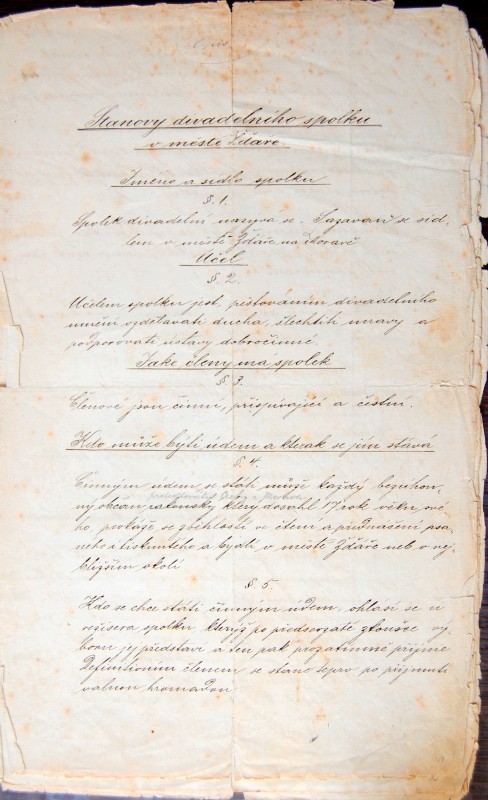 Stanovy divadelního spolku
v městě Žďáře
Jméno a sídlo spolku
§. 1.
Spolek divadelní nazývá se „Sázavan“ se síd-
lem v městě Žďáře na Moravě
Účel
§. 2.
Účelem spolku jest, pěstováním divadelního
umění vzdělávati ducha, šlechtiti mravy a
podporovati ústavy dobročinné.
Jaké členy má spolek
§. 3.
Členové jsou činní, přispívající a čestní.
Kdo může býti údem a kterak se jím stává
§. 4.
Činným údem se státi může každý bezúhon-
ný občan rakouský který dosáhl 17 rok věku,
ho prokáže se zběhlostí ve čtení a přednášení psa-
ného i tisknutého a bydlí v městě Žďáře neb v nej-
bližším okolí
§. 5.
Kdo se chce státi činným údem, ohlásí se u
režiséra spolku, kterýž po předsevzaté zkoušce vý-
boru jej představí a ten pak prozatímně přijme
Definitivním členem se stane teprv po přijmutí
valnou hromadou